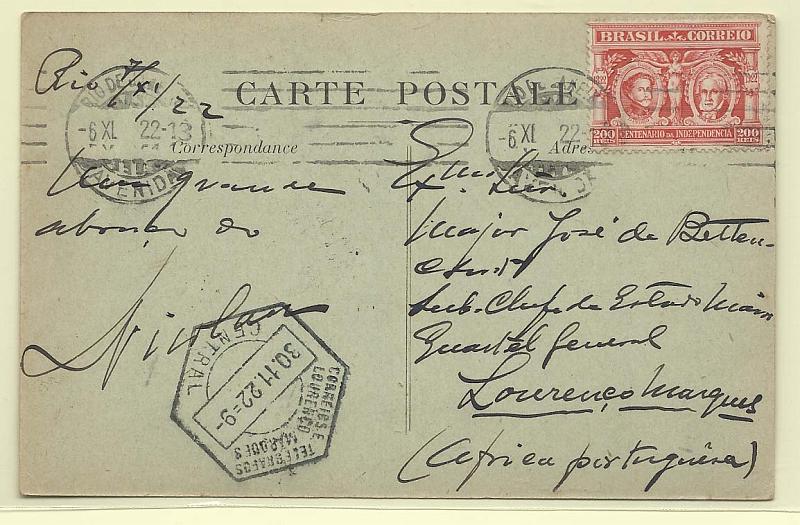 BRASIL CORREIO
1822
1922
200 CENTENARIO DA INDEPENDENCIA 200
REIS REIS
CARTE POSTALE
Correspondance
Rio 7/XI/22
RIO DE
-6 XI 22-13
AVENIDA
-6 XI 22-
Um grande
abraço do
Nicolau
Exmo Snr
Major José de Betten-
court
Sub-Chefe de Estado Maior
Quartel General
Lourenço Marques
(Africa portuguêsa)
CORREIOS E TELEGRAFOS
LOURENÇO MARQUES
30.11.22=9-
CENTRAL